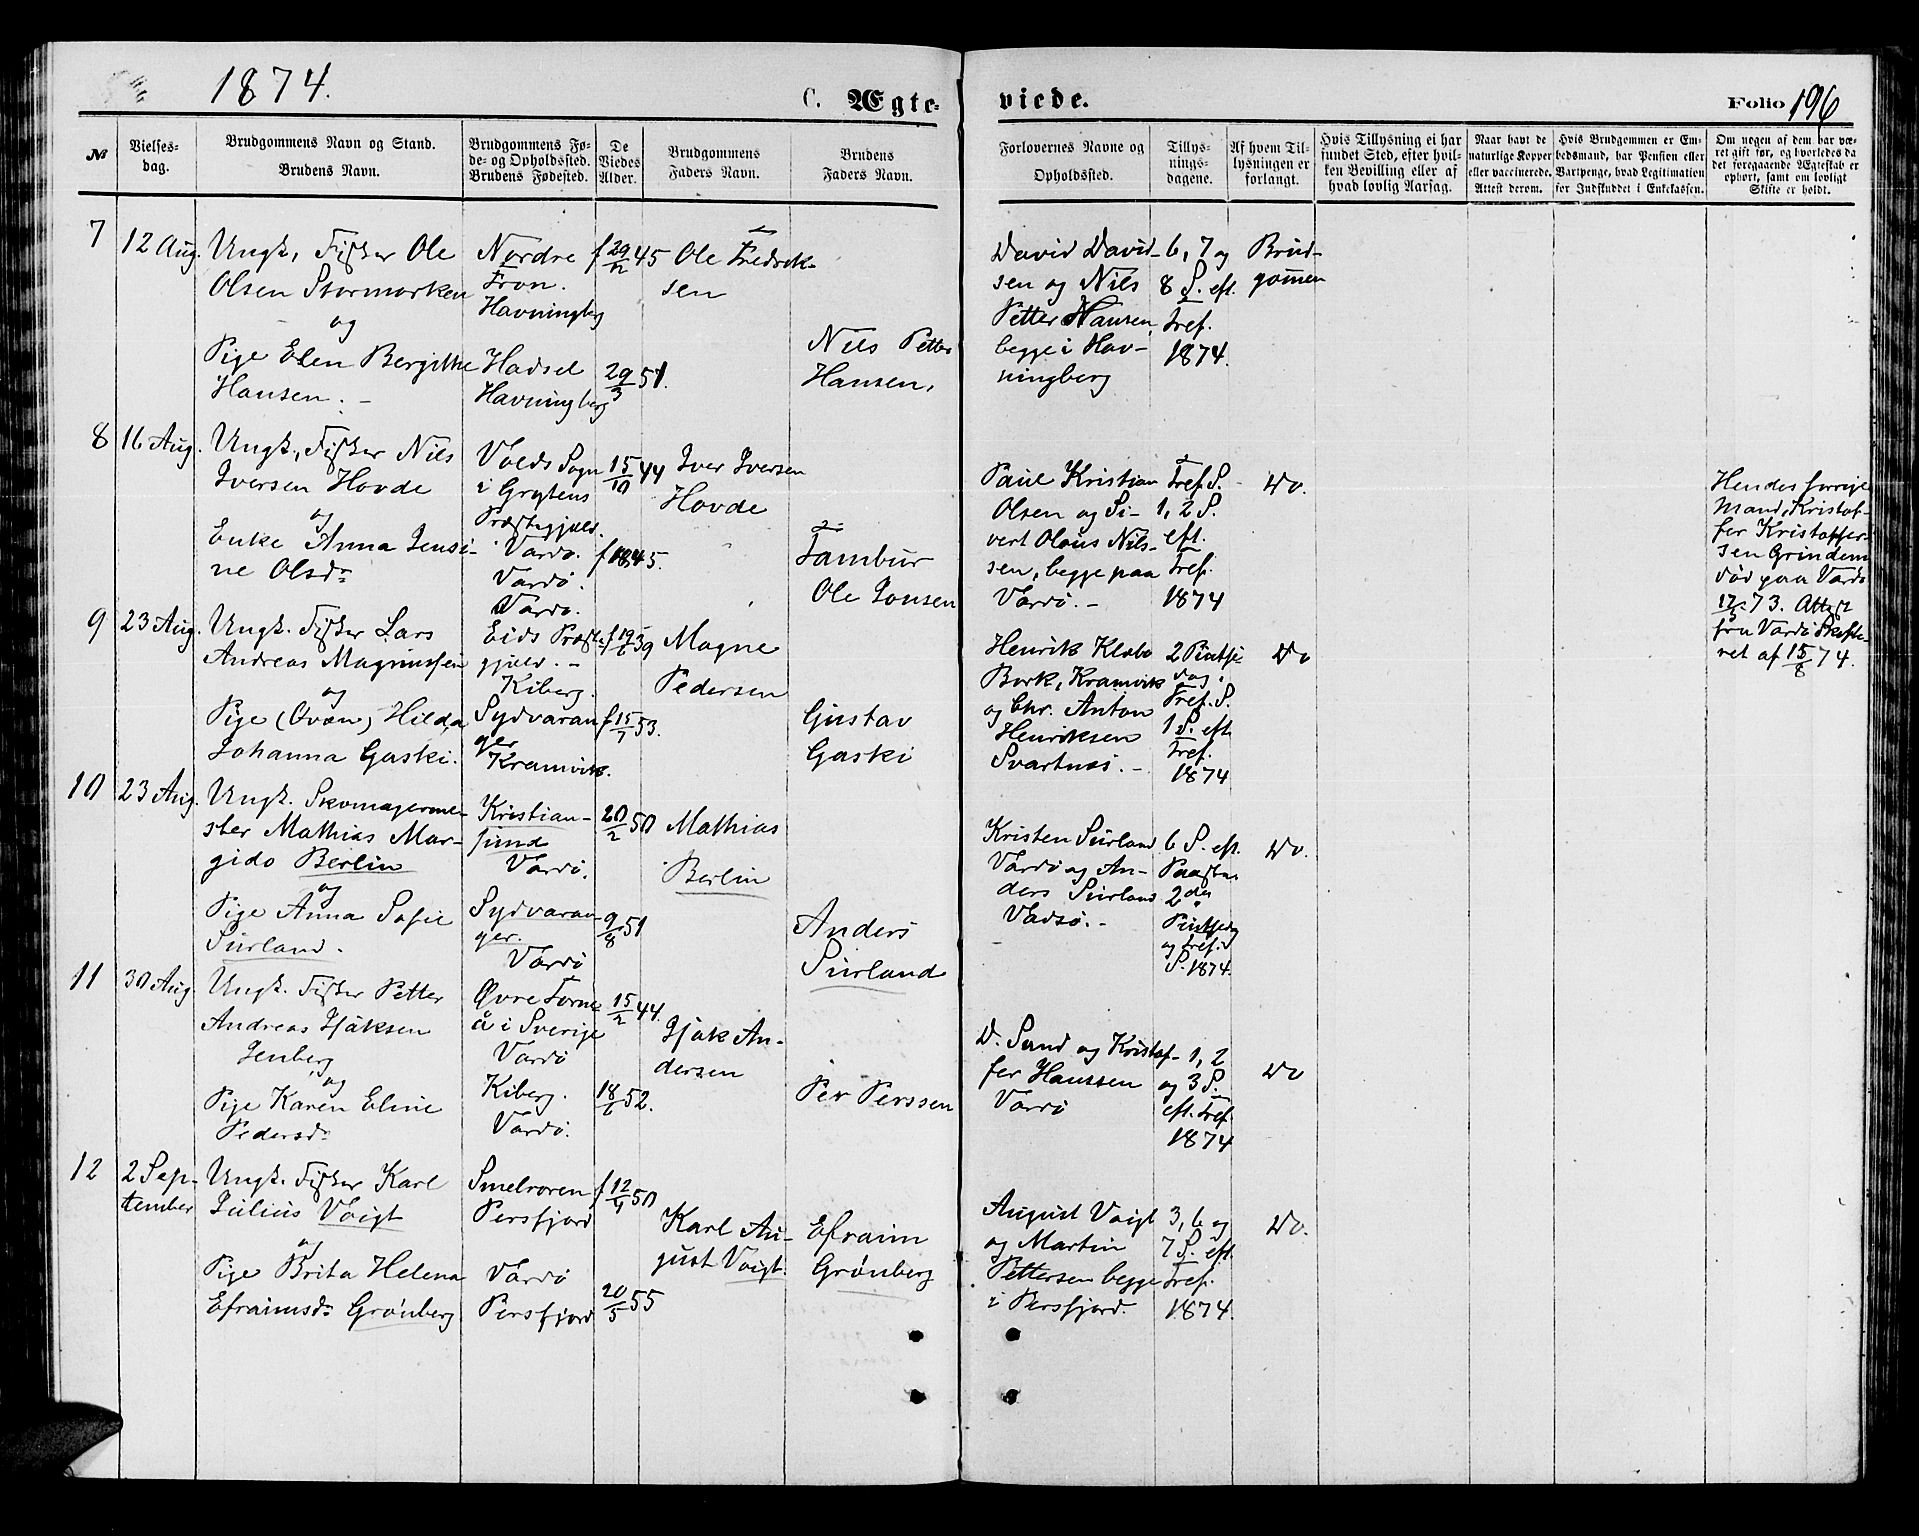 1874.
C. Ægte-
viede.
Folio 196
№
Vielses-
dag.
Brudgommens Navn og Stand.
Brudens Navn.
Brudgommens Fø-
de- og Opholdssted.
Brudens Fødested.
De
Viedes
Alder.
Brudgommens
Faders Navn.
Brudens
Faders Navn.
Forlovernes Navne og
Opholdssted.
Tillys-
nings-
dagene.
Af hvem Til-
lysningen er
forlangt.
Hvis Tillysning ei har
fundet Sted, efter hvil-
ken Bevilling eller af
hvad lovlig Aarsag.
Naar havt de
naturlige Kopper
eller vaccinerede.
Attest derom.
Hvis Brudgommen er Em-
bedsmand, har Pension eller
Vartpenge, hvad Legitimation
for Indskuddet i Enkekassen.
Om nogen af dem har væ-
ret gift før, og hvorledes da
det foregaaende Ægteskab er
ophørt, samt om lovligt
Skifte er holdt.
7
12 Aug.
Ungk., Fisker Ole
Olsen Stormorken
og
Pige Elen Bergitthe
Hansen. -
Nordre
Fron.
Havningberg
Hadsel
Havningberg
f 29/12 45
29/3 51.
Ole Fredrik-
sen
Nils Petter
Hansen,
David David-
sen og Nils
Petter Hansen,
begge i Hav-
ningberg
6, 7 og
8 S. eft.
Tref.
1874.
Brud-
gommen
8
16 Aug.
Ungk., Fisker Nils
Iversen Hovde
og
Enke Anna Jensi-
ne Olsdr
Volds Sogn
i Grytens
Præstegjæld.
Vardø.
Vardø.
Vardø.
15/10 44
f 1845.
Iver Iversen
Hovde
Tambur
Ole Jonsen
Paul Kristian
Olsen og Si-
vert Olaus Nils-
sen, begge paa
Vardø. -
Tref. S.
1, 2 S.
eft.
Tref.
1874
Do.
Hendes forrige
Mand, Kristof-
fer Kristoffer-
sen Grindem
død paa Vardø
73. Attest
fra Vardø Skifte-
ret af 15/8 74.
9
23 Aug.
Ungk. Fisker Lars
Andreas Magnussen
og
Pige (Qvæn) Hilda
Johanna Gaski.
Eids Præste-
gjæld. -
Kiberg.
Sydvaran
ger
Kramvik.
f 19/6 39
f 15/7 53.
Magne
Pedersen
Gustav
Gaski
Henrik Klæbo
Bork, Kramvik
og Chr. Anton
Henriksen
Svartnæs. -
2 Pintse
dag,
Tref. S.
1 S. eft
Tref.
1874
Do
10
23 Aug.
Ungk. Skomagerme-
ster Mathias Mar-
gido Berlin
og
Pige Anna Sofie
Surland.
Kristian-
sund
Vardø.
Sydvaran-
ger.
Vardø
20/2 50
9/8 51
Mathias
Berlin
Anders
Surland
Kristen Surland
Vardø og An-
ders Surland
Vadsø. -
6 S. eft.
Paaske
2den
Pintsedag
og Tref.
S. 1874.
Do.
11
30 Aug
Ungk. Fisker Petter
Andreas Isaksen
Jenberg
og
Pige Karen Eline
Pedersdr
Øvre Torne
å i Sverige
Vardø
Kiberg.
Vardø.
15/2 44.
18/6 52.
Isak An-
dersen
Per Perssen
D. Sund og Kristof-
fer Hanssen
Vardø
1, 2
og 3 S.
eft. Tref
1874
Do
12
2 Sep-
tember
Ungk. Fisker Karl
Julius Voigt
og
Pige Brita Helena
Efraimsdr Grønberg
Smelroren
Persfjord
Vardø
Persfjord
f 12/4 50
20/5 55
Karl Au-
gust Voigt.
Efraim
Grønberg
August Voigt
og Martin
Pettersen begge
i Persfjord.
3, 6 og
7 S. eft.
Tref.
1874.
Do.